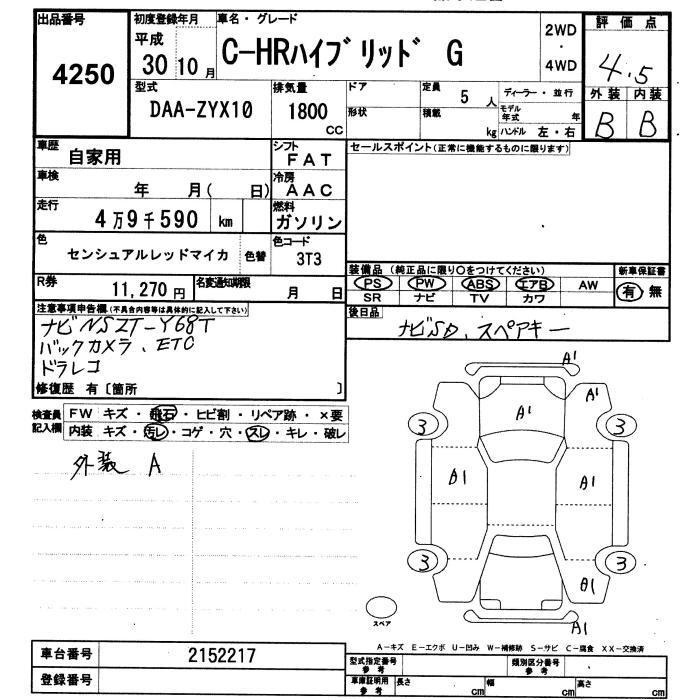 出品番号
4250
初度登録年月
平成
30 10月
車名・グレード
C-HRハイブリッド G
2WD
・
4WD
評価点
4.5
外装 内装
B B
型式
DAA-ZYX10
排気量
1800
CC
ドア
形状
定員
5 人
積載
kg
ディーラー・並行
モデル年式 年
ハンドル 左・右
車歴
自家用
シフト
FAT
車検
年 月( 日)
冷房
AAC
走行
4万9千590 km
燃料
ガソリン
色
センシュアルレッドマイカ
色替
色コード
3T3
R券
11,270円
名変通知期限
月 日
セールスポイント(正常に機能するものに限ります)
装備品(純正品に限り○をつけてください)
新車保証書
PS PW ABS エアB AW
有・無
SR ナビ TV カワ
後日品
ナビSD、スペアキー
注意事項申告欄.(不具合内容等は具体的に記入して下さい)
ナビNSZT-Y68T
バックカメラ、ETC
ドラレコ
修復歴 有〔箇所 〕
検査員
記入欄
FW キズ・飛石・ヒビ割・リペア跡・×要
内装 キズ・汚レ・コゲ・穴・スレ・キレ・破レ
外装 A
A1
A1
A1
3
3
A1
3
3
A1
スペア
A-キズ E-エクボ U-凹み W-補修跡 S-サビ C-腐食 XX-交換済
車台番号
2152217
登録番号
型式指定番号
参考
類別区分番号
参考
車庫証明用
参考
長さ cm
幅 cm
高さ cm